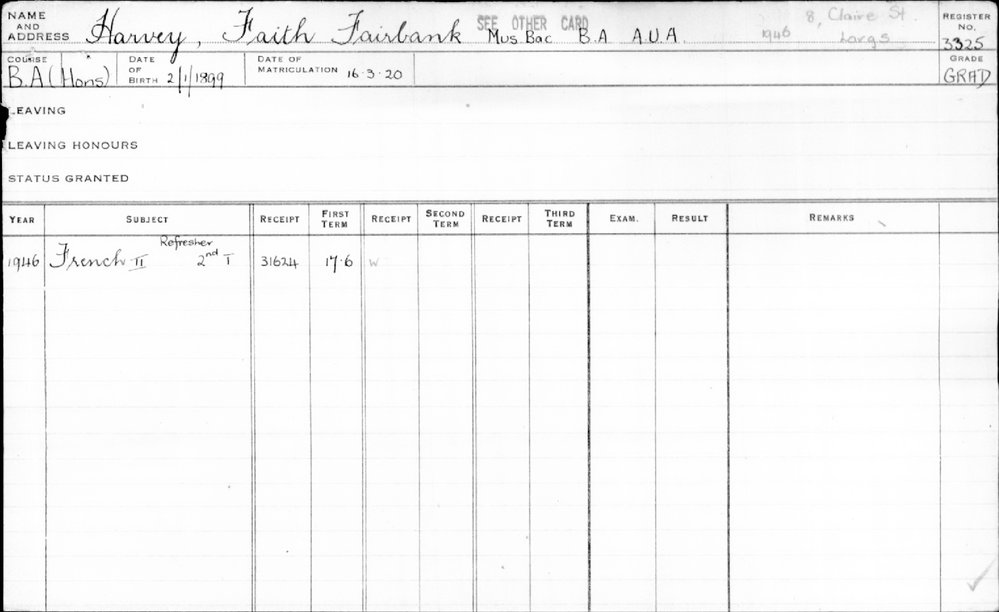 NAME AND ADDRESS Harvey, Faith Fairbank SEE OTHER CARD Mus. Bac B.A A.U.A. 1946 8, Claire St Largs REGISTER NO. 3325
COURSE B.A (Hons) DATE OF BIRTH 2/1/1899 DATE OF MATRICULATION 16.3.20 GRADE GRAD
LEAVING
LEAVING HONOURS
STATUS GRANTED
YEAR SUBJECT RECEIPT FIRST TERM RECEIPT SECOND TERM RECEIPT THIRD TERM EXAM. RESULT REMARKS
1946 French II Refresher 2nd T 31624 17.6 W